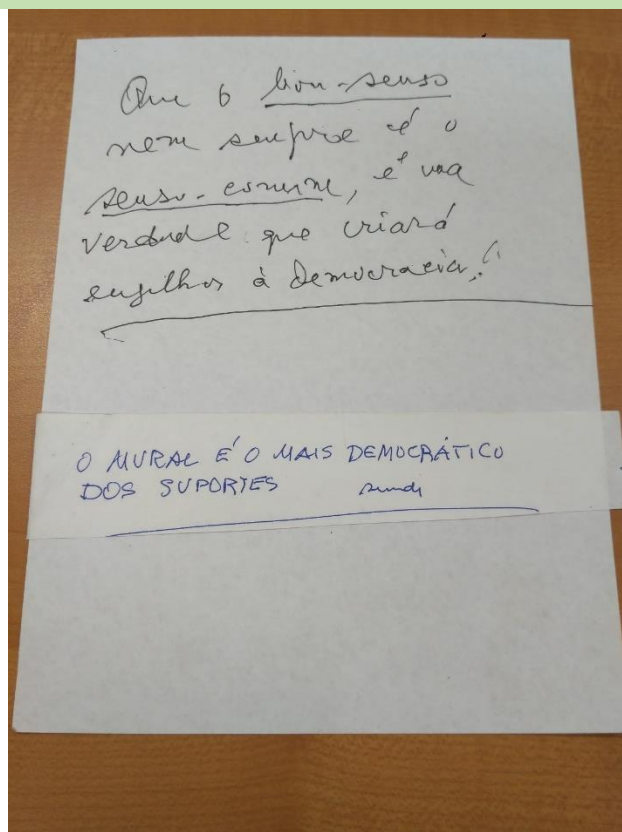 Que o bom-senso
nem sempre é o
senso-comum, é uma
verdade que criará
engulhos à democracia!
O MURAL É O MAIS DEMOCRÁTICO
DOS SUPORTES